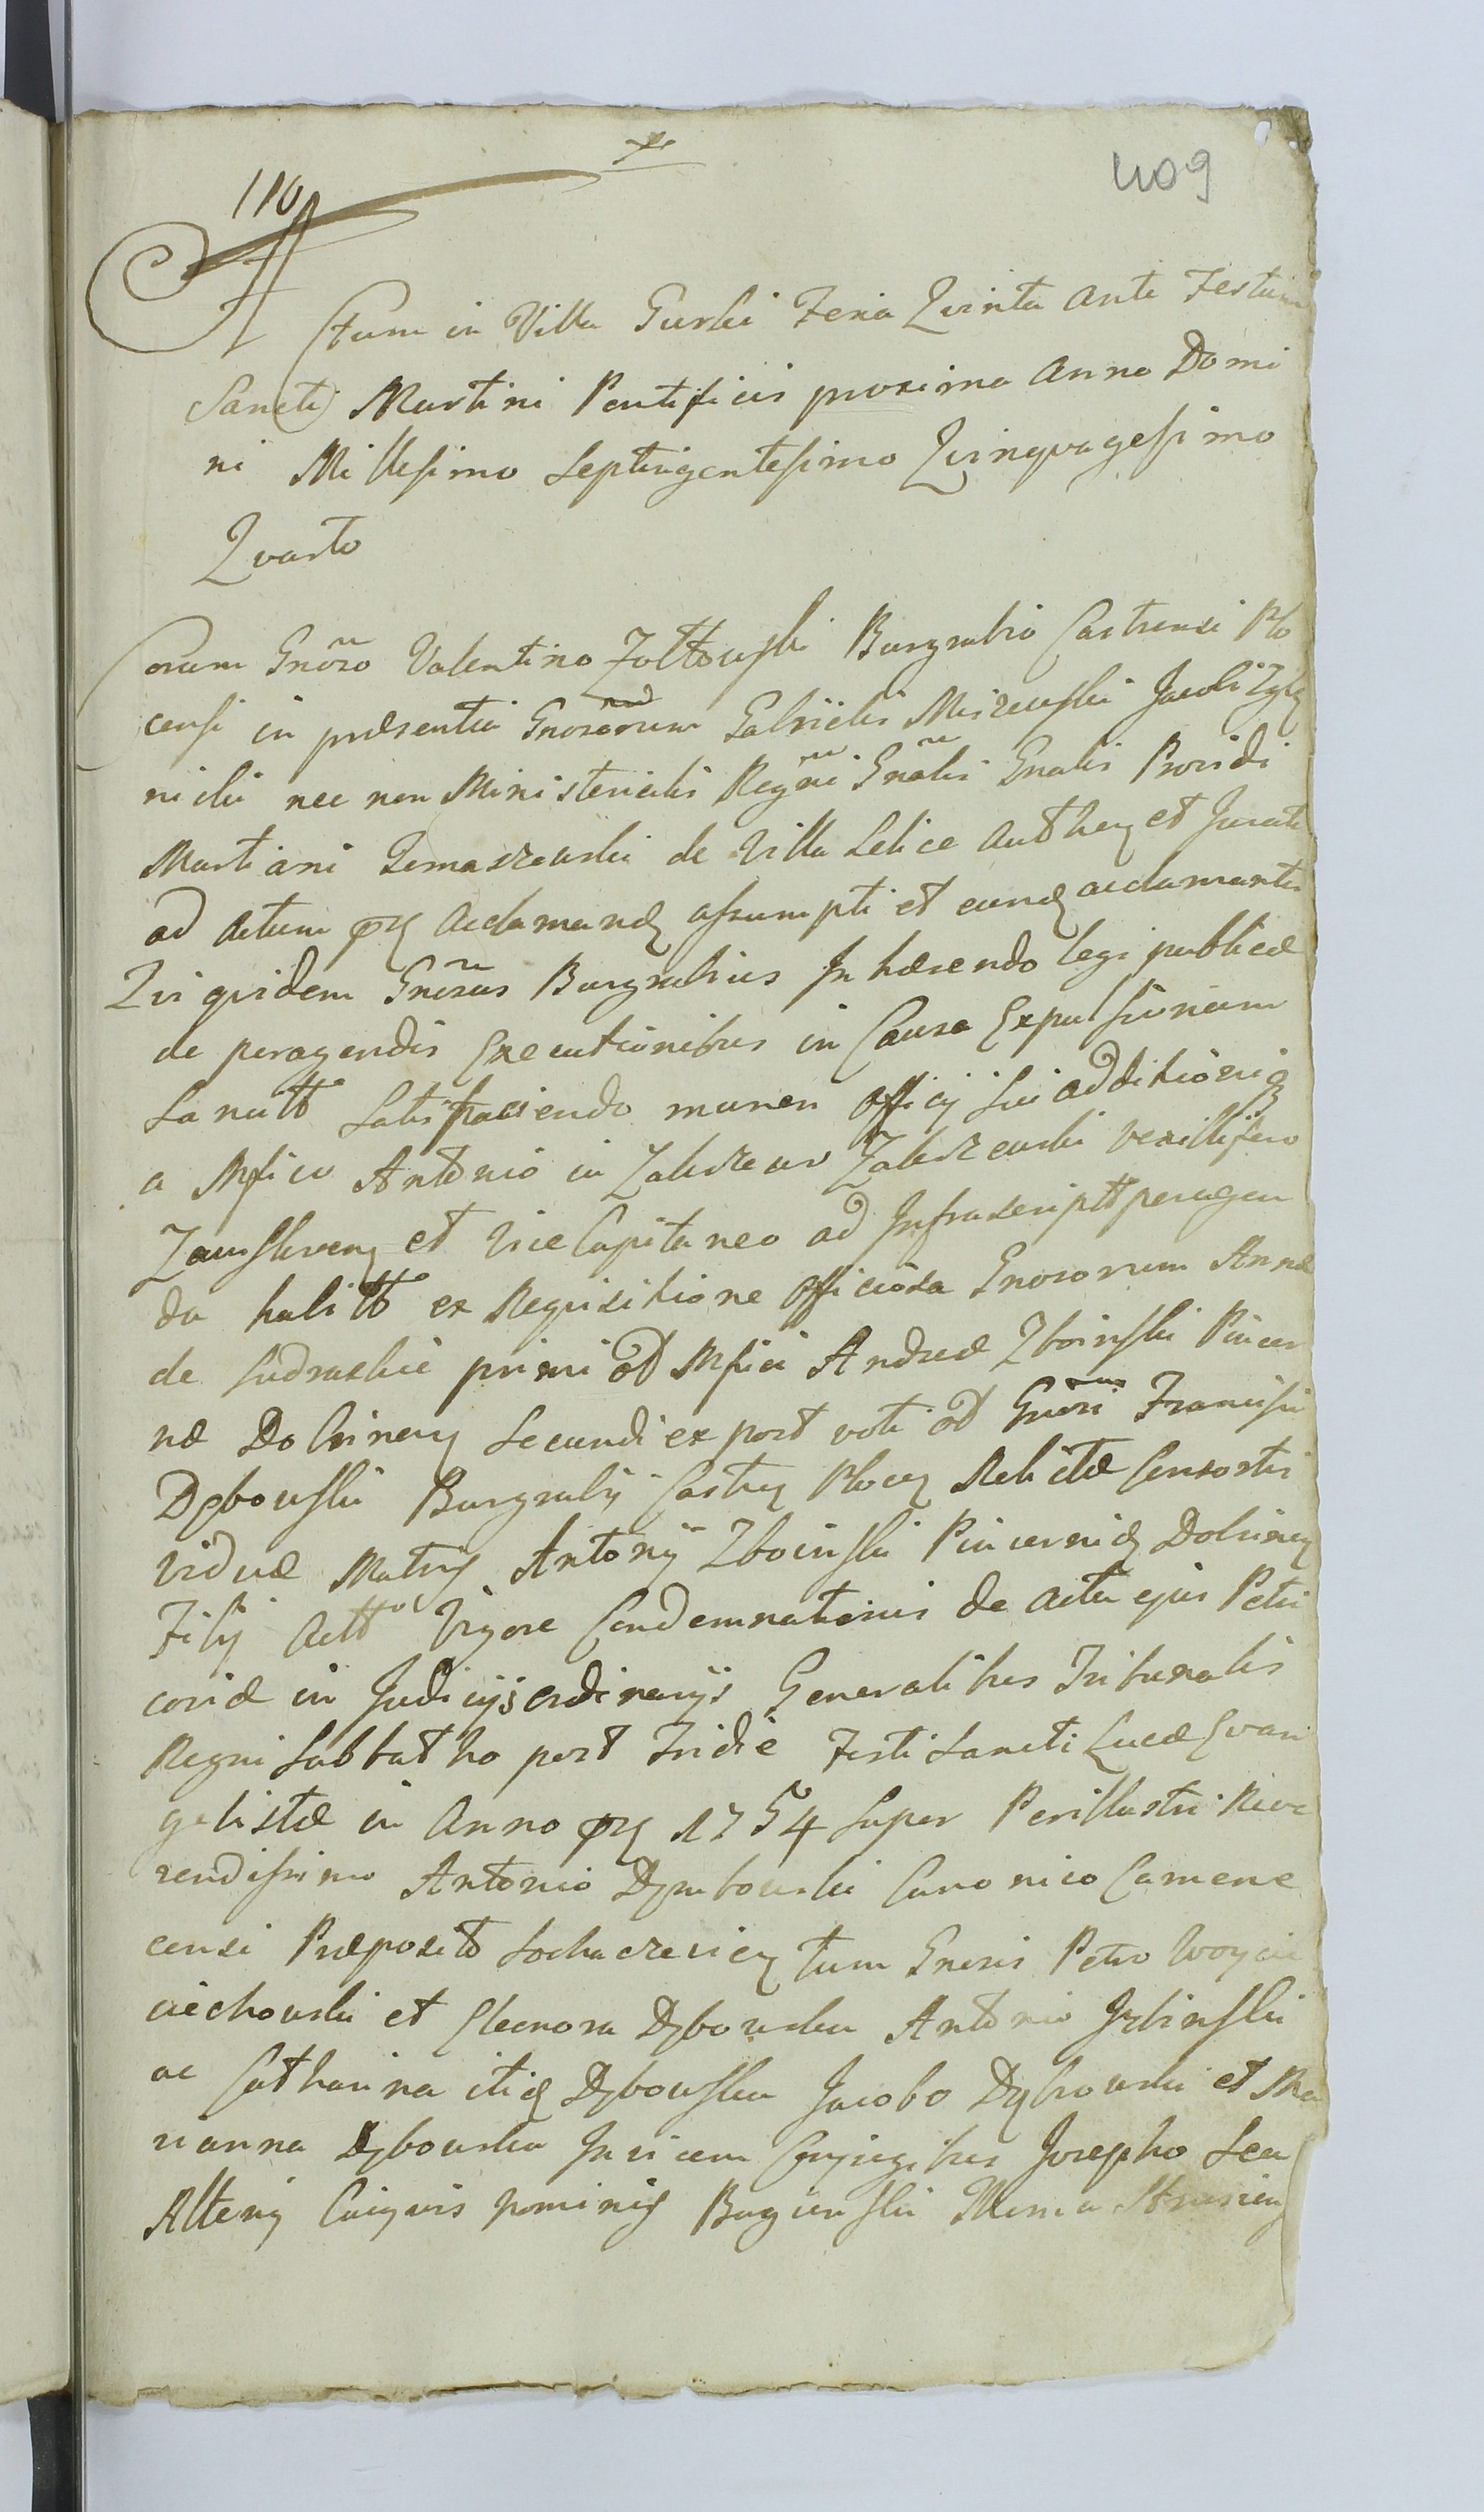 110
409
Actum in Villa Gurki Feria Qvinta ante Festum
Sancti Martini Pontificis proxima Anno Domi
ni Millesimo Septingentesimo Qvinqvagesimo
Qvarto
Coram Gnõso Valentino Zołtowski Burgrabio Castrensi Plo
censi in præsentia Gnosorum Gabrielis Miszewski Jacobi
nicki nec non Ministerialis Regni Gnãlis Gnalis Providi
Martiani Tomaszewski de Villa Lelice Authen et Jurati
ad Actum prn Acclamand assumpti et eund acclamantis
Qui qvidem Gnõsus Burgrabius Inhærendo legi publicæ
de peragendis Executionibus in Causa Expulsionum
Sancitt Satisfaciendo muneri Officij Sui additioniq
a Mfico Antonio in Zakrzew Zakrzewski Vexillifero
Zawskrzen et Vice Capitaneo ad Infrascriptt peragen
da habitt ex Reqvisitione Officiosa Gnosorum Annæ
de Sudraskie primi ad Mfici Andreæ Zboinski Pincer
næ Dobrinen Secundi ex post voti ad Gnõsi Francisci
Dębowski Burgrabij Castren Plocen Relictæ Consortis
Viduæ Matris Antonij Zboinski Pincernid Dobrinen
Filij Actt Vigore Condemnationis de Actu ejus Petri
coviæ in Judicijs ordinarijs Generalibus Tribunalis
Regni Sabbatho post Fridie Festi Sancti Lucæ Evan
gelistæ in Anno prn 1754 Super Perillustri Reve
rendissimo Antonio Dębowski Canonico Camene
censi Præposito Sochaczevien tum Gnosis Petro Woycie
ciechowski et Eleonora Dębowska Antonio Grbinski
ac Catharina itid Dębowska Jacobo Dębrowski et Ma
rianna Dębowska Invicem Conjugibus Josepho Seu
Alterij Cujusvis nominis Bugienski